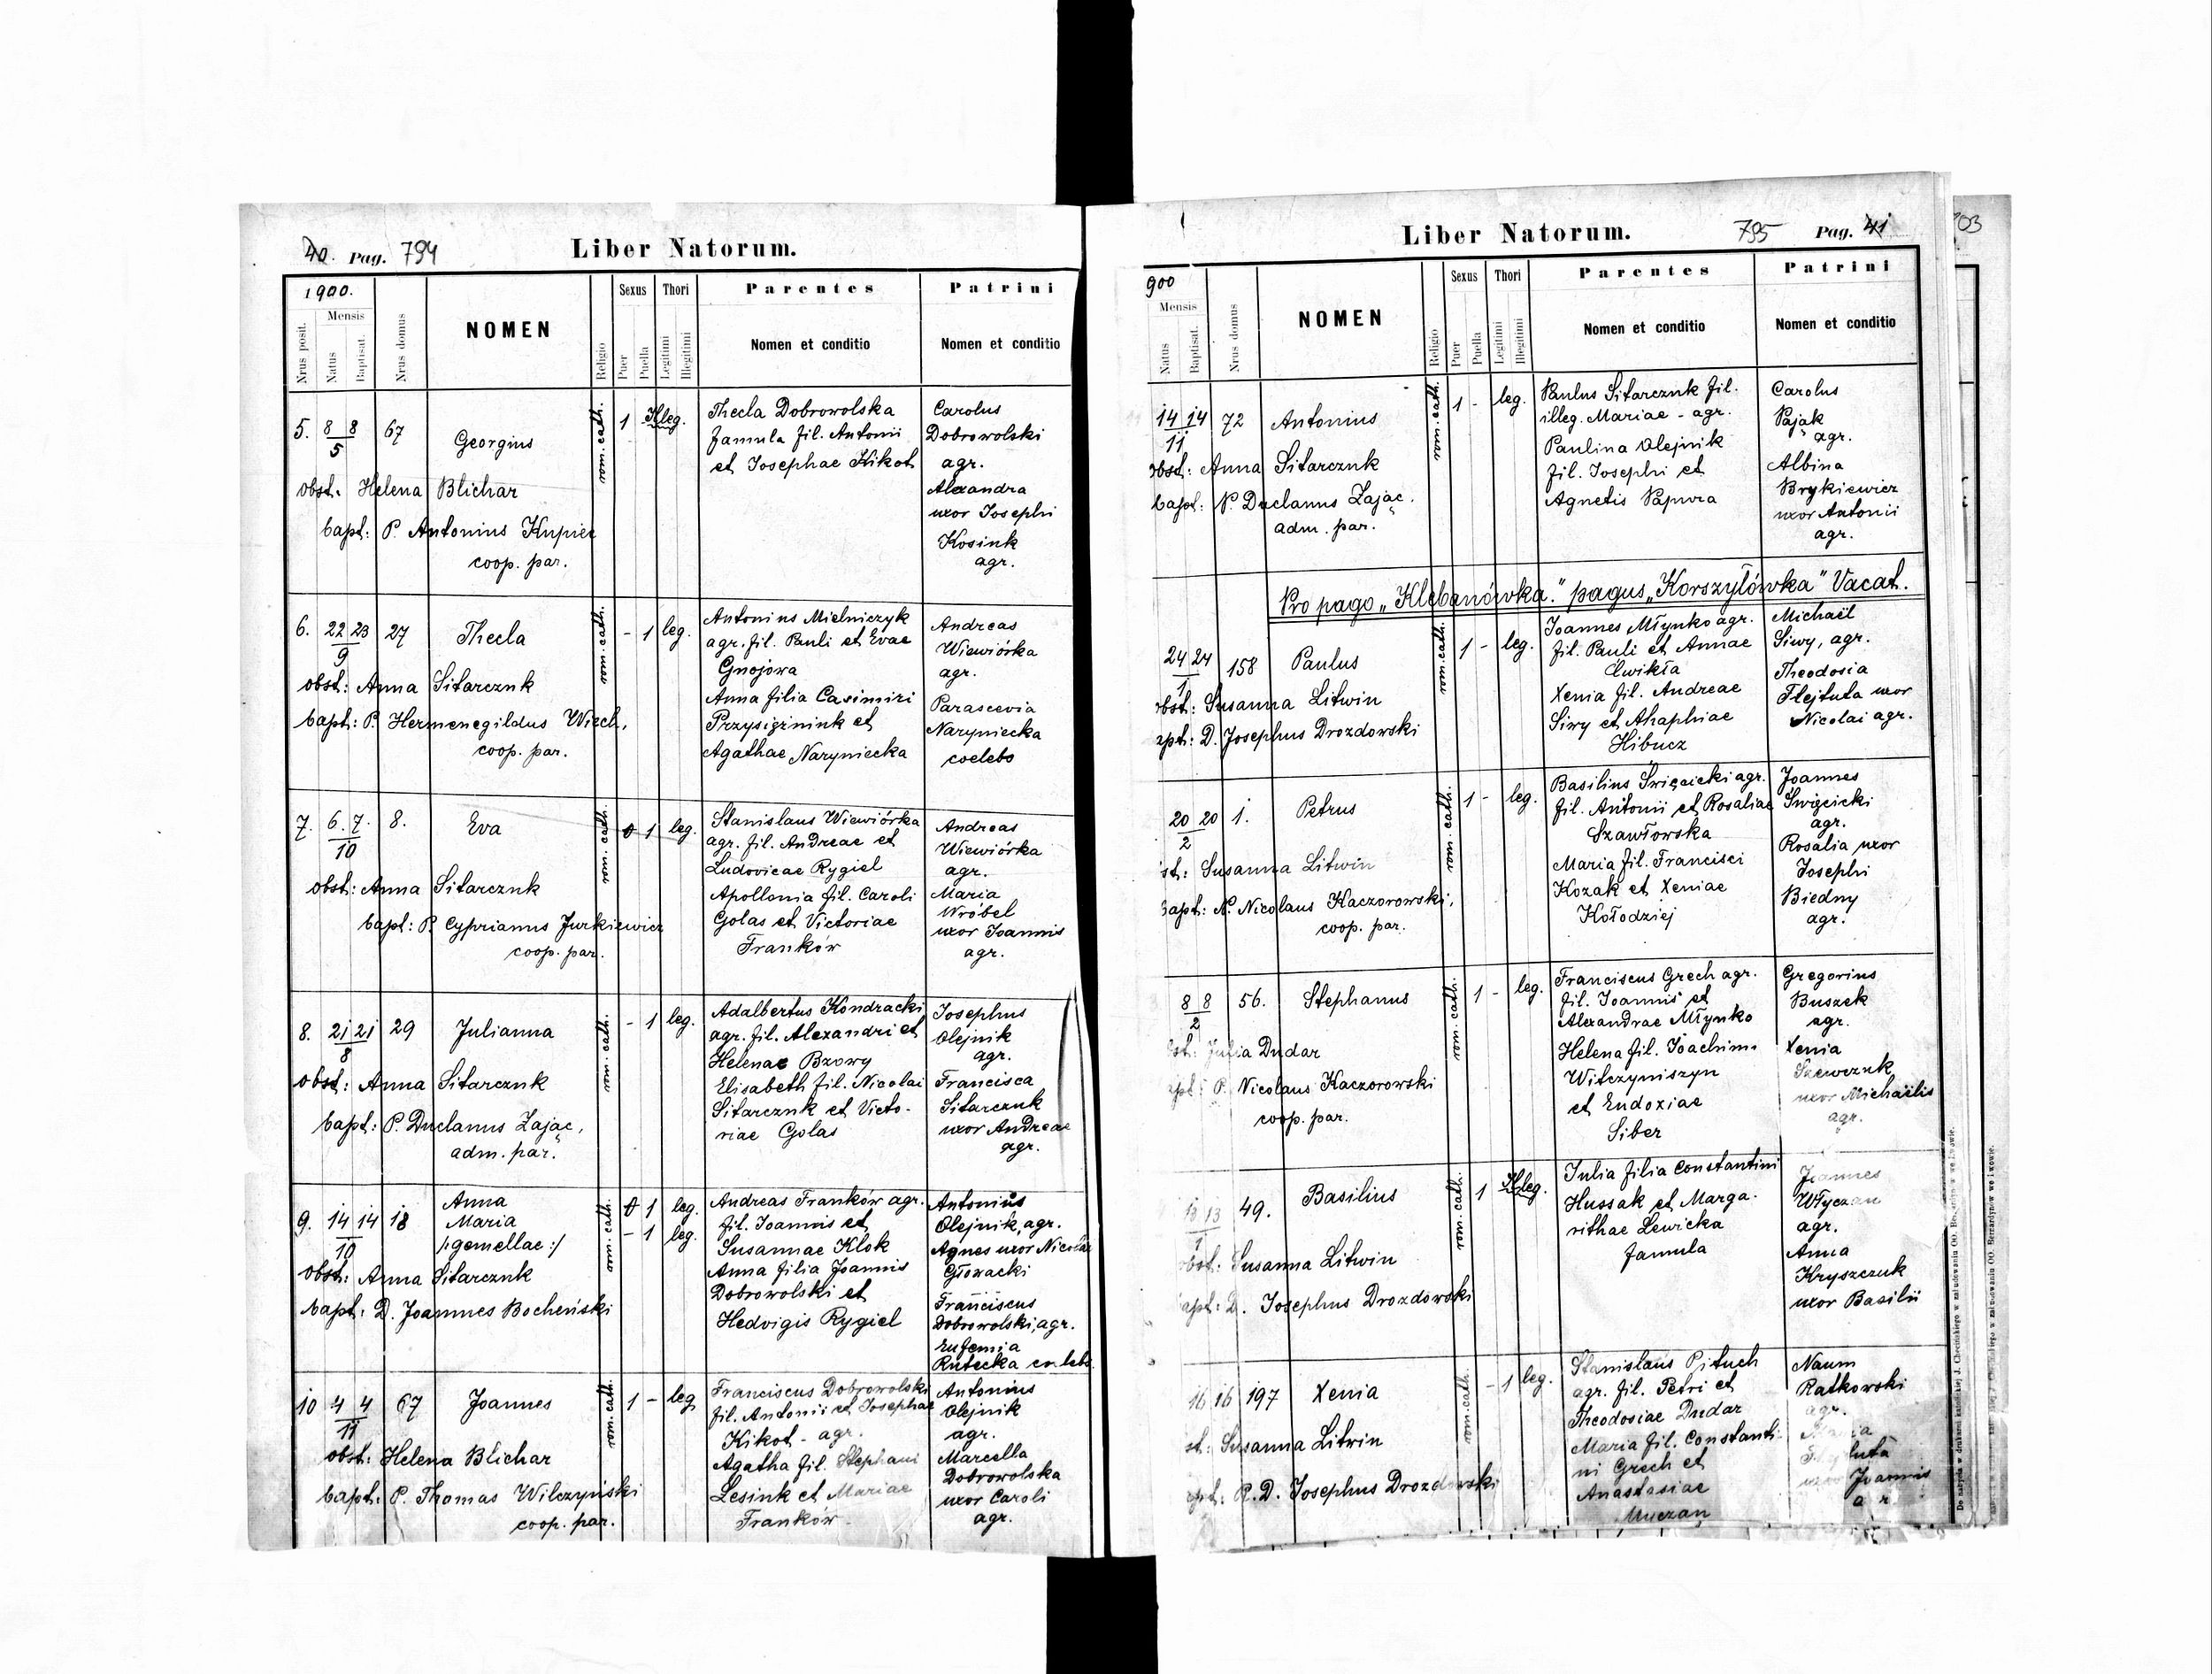 40. Pag. 794 Liber Natorum.
1900.
Nrus posit. Mensis Natus Baptisat. Nrus domus NOMEN Religio Sexus Puer Puella Thori Legitimi Illegitimi Parentes Nomen et conditio Patrini Nomen et conditio
5. 8 8 67 Georgius rom. cath. 1 Illeg. Thecla Dobrowolska Carolus
5 famula fil. Antonii Dobrowolski
et Josephae Kikot agr.
obst. Helena Blichar Alexandra
uxor Josephi
bapt: P. Antonius Kupiec Kosiuk
coop. par. agr.
6. 22 23 27 Thecla rom. cath. - 1 leg. Antonius Mielniczyk Andreas
9 agr. fil. Pauli et Evae Wiewiórka
Gnojowa agr.
obst: Anna Sitarczuk Anna filia Casimiri Parascevia
bapt: P. Hermenegildus Wirch, et Naryniecka
coop. par. Agathae Naryniecka coelebs
7. 6. 7. 8. Eva rom. cath. 0 1 leg. Stanislaus Wiewiórka Andreas
10 agr. fil. Andreae et Wiewiórka
Ludovicae Rygiel agr.
obst: Anna Sitarczuk Apollonia fil. Caroli Maria
Golas et Victoriae Wróbel
bapt: P. Cyprianus Jurkiewicz Franków uxor Joannis
coop. par. agr.
8. 21 21 29 Julianna rom. cath. - 1 leg. Adalbertus Kondracki Josephus
8 agr. fil. Alexandri et Olejnik
Helenae Bzowy agr.
obst: Anna Sitarczuk Elisabeth fil. Nicolai Francisca
Sitarczuk et Victo- Sitarczuk
bapt: P. Duclanus Zając, riae Golas uxor Andreae
adm. par. agr.
9. 14 14 18 Anna rom. cath. 0 1 leg. Andreas Franków agr. Antonius
10 Maria - 1 leg. fil. Joannis et Olejnik, agr.
/:gemellae:/ Susannae Klok Agnes uxor Nicolai
obst: Anna Sitarczuk Anna filia Joannis Głowacki
Dobrowolski et Franciscus
bapt: D. Joannes Bocheński Hedvigis Rygiel Dobrowolski, agr.
Eufemia
Rutecka coelebs
10 4 4 67 Joannes rom. cath. 1 - leg Franciscus Dobrowolski Antonius
11 fil. Antonii et Josephae Olejnik
Kikot - agr. agr.
obst: Helena Blichar Agatha fil. Stephani Marcella
Lesiuk et Mariae Dobrowolska
bapt: P. Thomas Wilczyński Franków uxor Caroli
coop. par. agr.
Liber Natorum. 795 Pag. 41
900
Mensis Natus Baptisat. Nrus domus NOMEN Religio Sexus Puer Puella Thori Legitimi Illegitimi Parentes Nomen et conditio Patrini Nomen et conditio
14 14 72 Antonius rom. cath. 1 - leg. Paulus Sitarczuk fil. Carolus
11 illeg. Mariae - agr. Pająk
Paulina Olejnik agr.
obst: Anna Sitarczuk fil. Josephi et Albina
bapt: P. Duclanus Zając. Agnetis Papura Brykiewicz
adm. par. uxor Antonii
agr.
Pro pago "Klebanówka". pagus "Korszyłówka" Vacat.
24 24 158 Paulus rom. cath. 1 - leg. Joannes Młynko agr. Michaël
1 fil. Pauli et Annae Siwy, agr.
Ćwikła Theodosia
obst: Susanna Litwin Xenia fil. Andreae Flejtuta uxor
bapt: D. Josephus Drozdowski Siwy et Ahaphiae Nicolai agr.
Hibucz
20 20 1. Petrus rom. cath. 1 - leg. Basilius Święcicki agr. Joannes
2 fil. Antonii et Rosaliae Święcicki
Szawłowska agr.
obst: Susanna Litwin Maria fil. Francisci Rosalia uxor
Kozak et Xeniae Josephi
bapt: P. Nicolaus Kaczorowski, Kołodziej Biedny
coop. par. agr.
8 8 56. Stephanus rom. cath. 1 - leg. Franciscus Grech agr. Gregorius
2 fil. Joannis et Buszek
Alexandrae Młynko agr.
obst: Julia Dudar Helena fil. Joachimi Xenia
Witczyniszyn Szewczuk
bapt: P. Nicolaus Kaczorowski et Eudoxiae uxor Michaëlis
coop. par. Siber agr.
13 13 49. Basilius rom. cath. 1 Illeg. Julia filia Constantini Joannes
1 Hussak et Marga-
rithae Lewicka agr.
famula Anna
obst: Susanna Litwin Kryszczuk
bapt: D. Josephus Drozdowski uxor Basilii
16 16 197 Xenia rom. cath. - 1 leg. Stanislaus Pituch Naum
agr. fil. Petri et Ratkowski
Theodosiae Dudar agr.
obst: Susanna Litwin Maria fil. Constanti-
ni Grech et
bapt: P. D. Josephus Drozdowski Anastasiae uxor Joannis